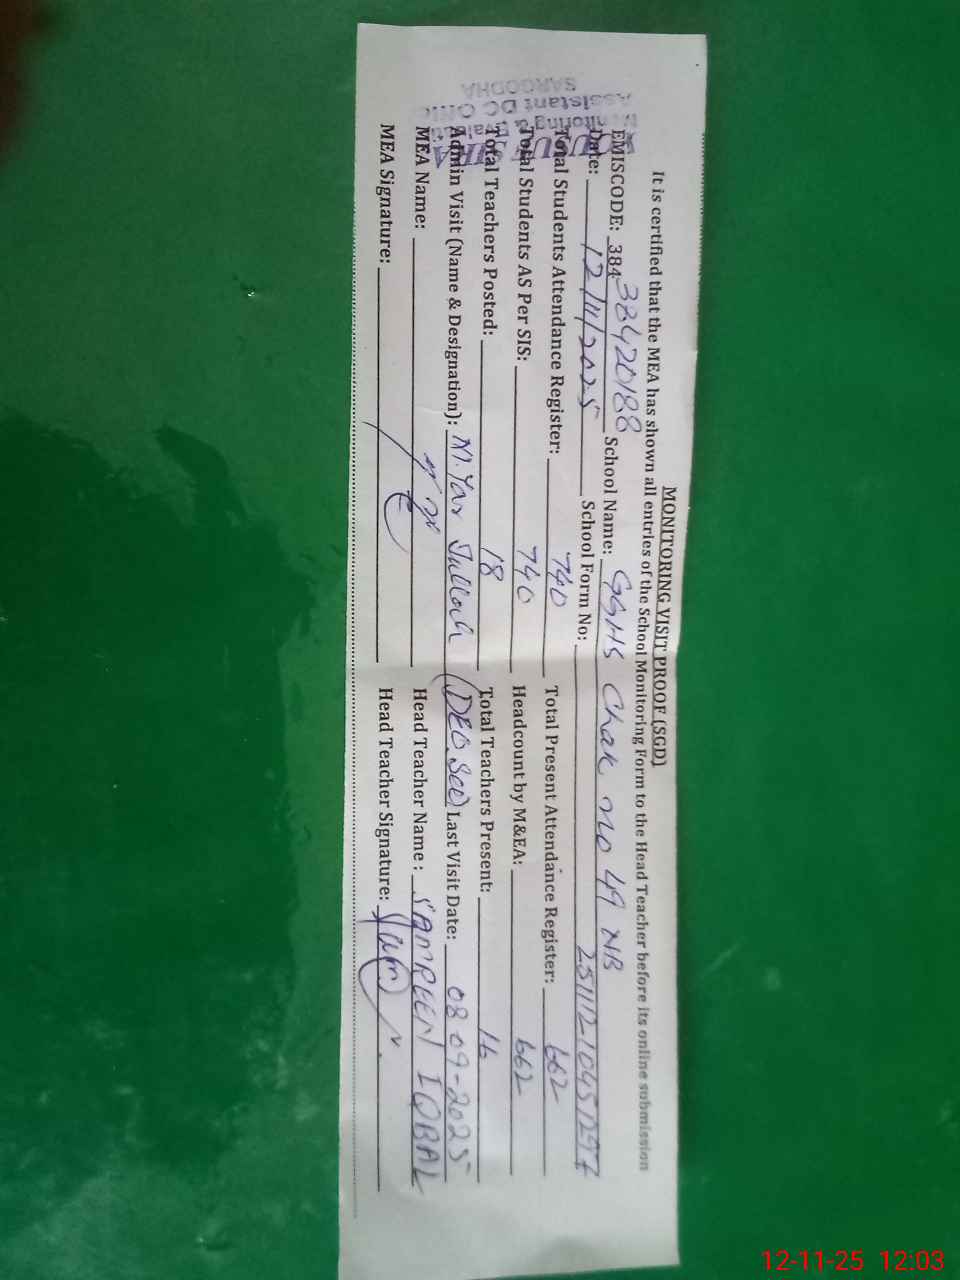 MONITORING VISIT PROOF (SGD)
It is certified that the MEA has shown all entries of the School Monitoring Form to the Head Teacher before its online submission
EMISCODE: 384 38420188 School Name: GGHS Chak no 49 NB
Date: 12/11/2025 School Form No: 25111210451297
Total Students Attendance Register: 740 Total Present Attendance Register: 662
Total Students AS Per SIS: 740 Headcount by M&EA: 662
Total Teachers Posted: 18 Total Teachers Present: 16
Admin Visit (Name & Designation): M. Yar Jullah (DEO.See) Last Visit Date: 08-09-2025
MEA Name: Head Teacher Name: SAMREEN IQBAL
MEA Signature: Head Teacher Signature:
Monitoring & Evaluation
Assistant DC Office
SARGODHA
12-11-25 12:03